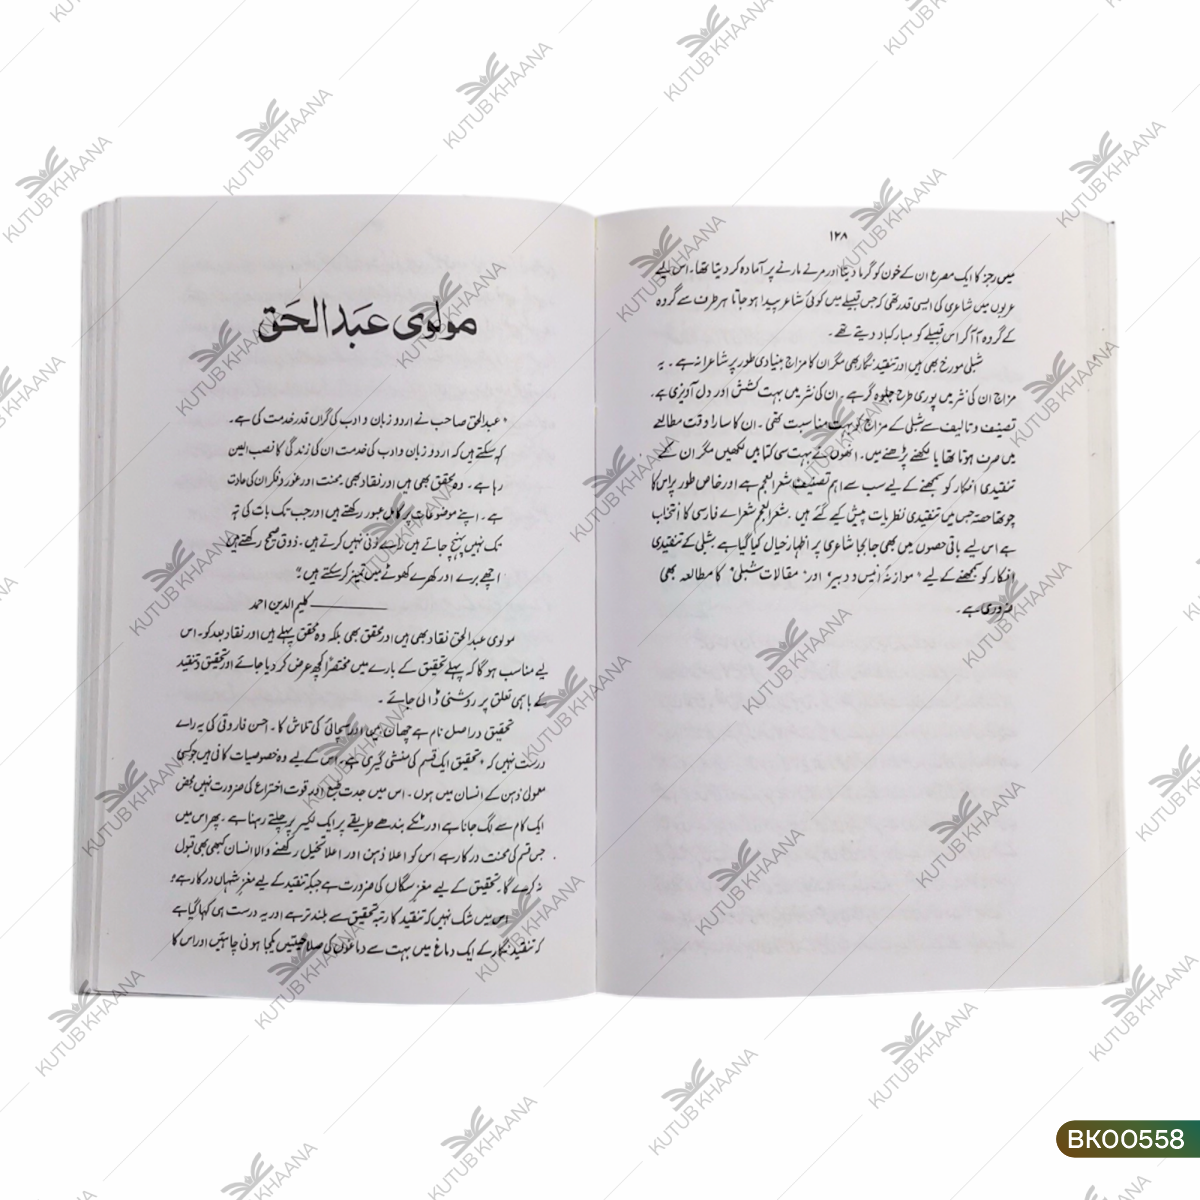 ۱۲۸
میں رجز کا ایک مصرع ان کے خون کو گرما دیتا اور مرنے مارنے پر آمادہ کر دیتا تھا۔ اس لیے
عربوں میں شاعری کی ایسی قدر تھی کہ جس قبیلے میں کوئی شاعر پیدا ہو جاتا ہر طرف سے گروہ
کے گروہ آ آ کر اس قبیلے کو مبارکباد دیتے تھے۔
شبلی مورخ بھی ہیں اور تنقید نگار بھی مگر ان کا مزاج بنیادی طور پر شاعرانہ ہے۔ یہ
مزاج ان کی نثر میں پوری طرح جلوہ گر ہے۔ ان کی نثر میں بہت کشش اور دل آویزی ہے۔
تصنیف و تالیف سے شبلی کے مزاج کو بہت مناسبت تھی۔ ان کا سارا وقت مطالعے
میں صرف ہوتا تھا یا لکھنے پڑھنے میں۔ انھوں نے بہت سی کتابیں لکھیں مگر ان کے
تنقیدی افکار کو سمجھنے کے لیے سب سے اہم تصنیف شعرالعجم ہے اور خاص طور پر اس کا
چوتھا حصہ جس میں تنقیدی نظریات پیش کیے گئے ہیں۔ شعرالعجم شعرائے فارسی کا انتخاب
ہے اس لیے باقی حصوں میں بھی جا بجا شاعری پر اظہار خیال کیا گیا ہے۔ شبلی کے تنقیدی
افکار کو سمجھنے کے لیے "موازنۂ انیس و دبیر" اور "مقالات شبلی" کا مطالعہ بھی
ضروری ہے۔
مولوی عبدالحق
"عبدالحق صاحب نے اردو زبان و ادب کی گراں قدر خدمت کی ہے۔
کہہ سکتے ہیں کہ اردو زبان و ادب کی خدمت ان کی زندگی کا نصب العین
رہا ہے۔ وہ محقق بھی ہیں اور نقاد بھی۔ محنت اور غور و فکر ان کی عادت
ہے۔ اپنے موضوعات پر کامل عبور رکھتے ہیں اور جب تک بات کی تہہ
تک نہیں پہنچ جاتے ہیں رائے زنی نہیں کرتے ہیں۔ ذوق صحیح رکھتے ہیں
اچھے برے اور کھرے کھوٹے میں تمیز کر سکتے ہیں۔"
کلیم الدین احمد
مولوی عبدالحق نقاد بھی ہیں اور محقق بھی بلکہ وہ محقق پہلے ہیں اور نقاد بعد کو۔ اس
لیے مناسب ہو گا کہ پہلے تحقیق کے بارے میں مختصراً کچھ عرض کر دیا جائے اور تحقیق و تنقید
کے باہمی تعلق پر روشنی ڈالی جائے۔
تحقیق دراصل نام ہے چھان بین اور سچائی کی تلاش کا۔ احسن فاروقی کی یہ رائے
درست نہیں کہ "تحقیق ایک قسم کی منشی گیری ہے۔ اس کے لیے وہ خصوصیات کافی ہیں جو کسی
معمولی ذہن کے انسان میں ہوں۔ اس میں جدت طبع اور قوت اختراع کی ضرورت نہیں محض
ایک کام سے لگ جانا ہے اور ٹکے بندھے طریقے پر ایک لکیر پر چلتے رہنا ہے۔ پھر اس میں
جس قسم کی محنت درکار ہے اس کو اعلا ذہن اور اعلا تخیل رکھنے والا انسان کبھی بھی قبول
نہ کرے گا۔ تحقیق کے لیے مغز سگاں کی ضرورت ہے جبکہ تنقید کے لیے مغز شہاں درکار ہے"
اس میں شک نہیں کہ تنقید کا رتبہ تحقیق سے بلند تر ہے اور یہ درست ہی کہا گیا ہے
کہ تنقید نگار کے ایک دماغ میں بہت سے دماغوں کی صلاحیتیں یکجا ہونی چاہئیں اور اس کا
KUTUB KHAANA
BK00558